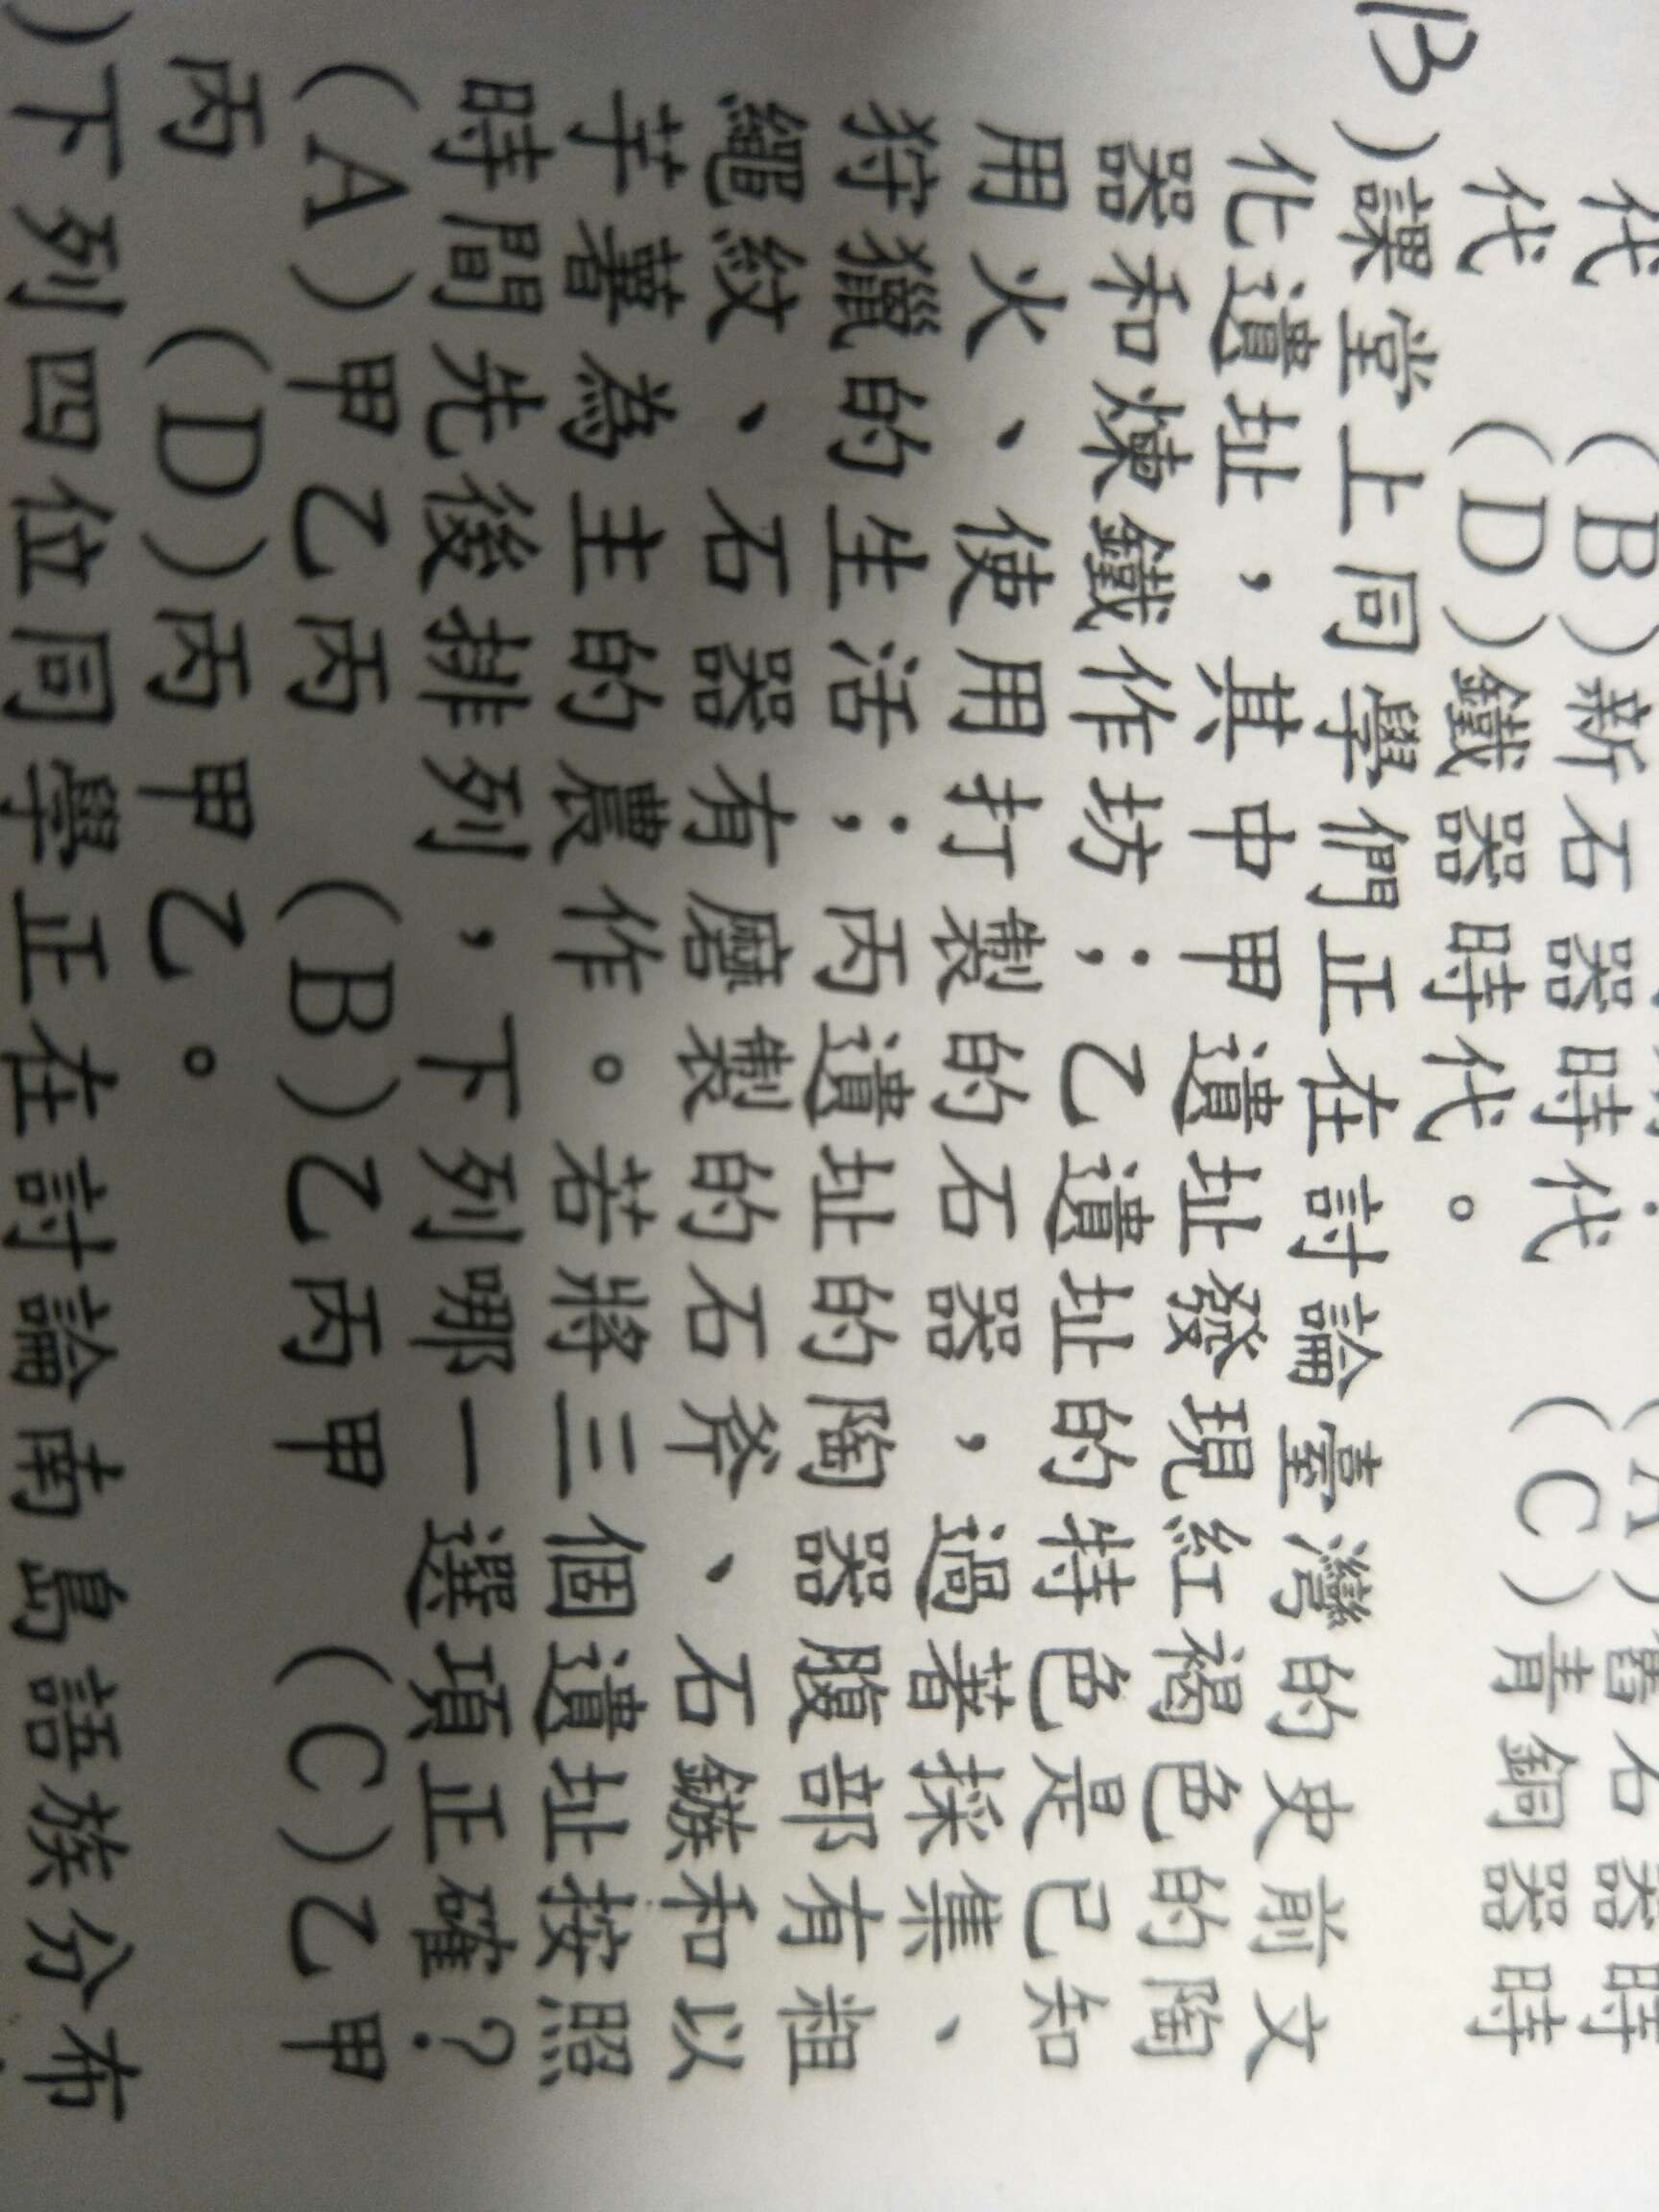 (A)舊石器時
代　(B)新石器時代　(C)青銅器時
代　(D)鐵器時代。
B)課堂上同學們正在討論臺灣的史前文
化遺址，其中甲遺址發現紅褐色的陶
器和煉鐵作坊；乙遺址的特色是已知
用火、使用打製的石器，過著採集、
狩獵的生活；丙遺址的陶器腹部有粗
繩紋、石器有磨製的石斧、石鏃和以
芋薯為主的農作。若將三個遺址按照
時間先後排列，下列哪一選項正確？
(A)甲乙丙　(B)乙丙甲　(C)乙甲
丙　(D)丙甲乙。
)下列四位同學正在討論南島語族分布